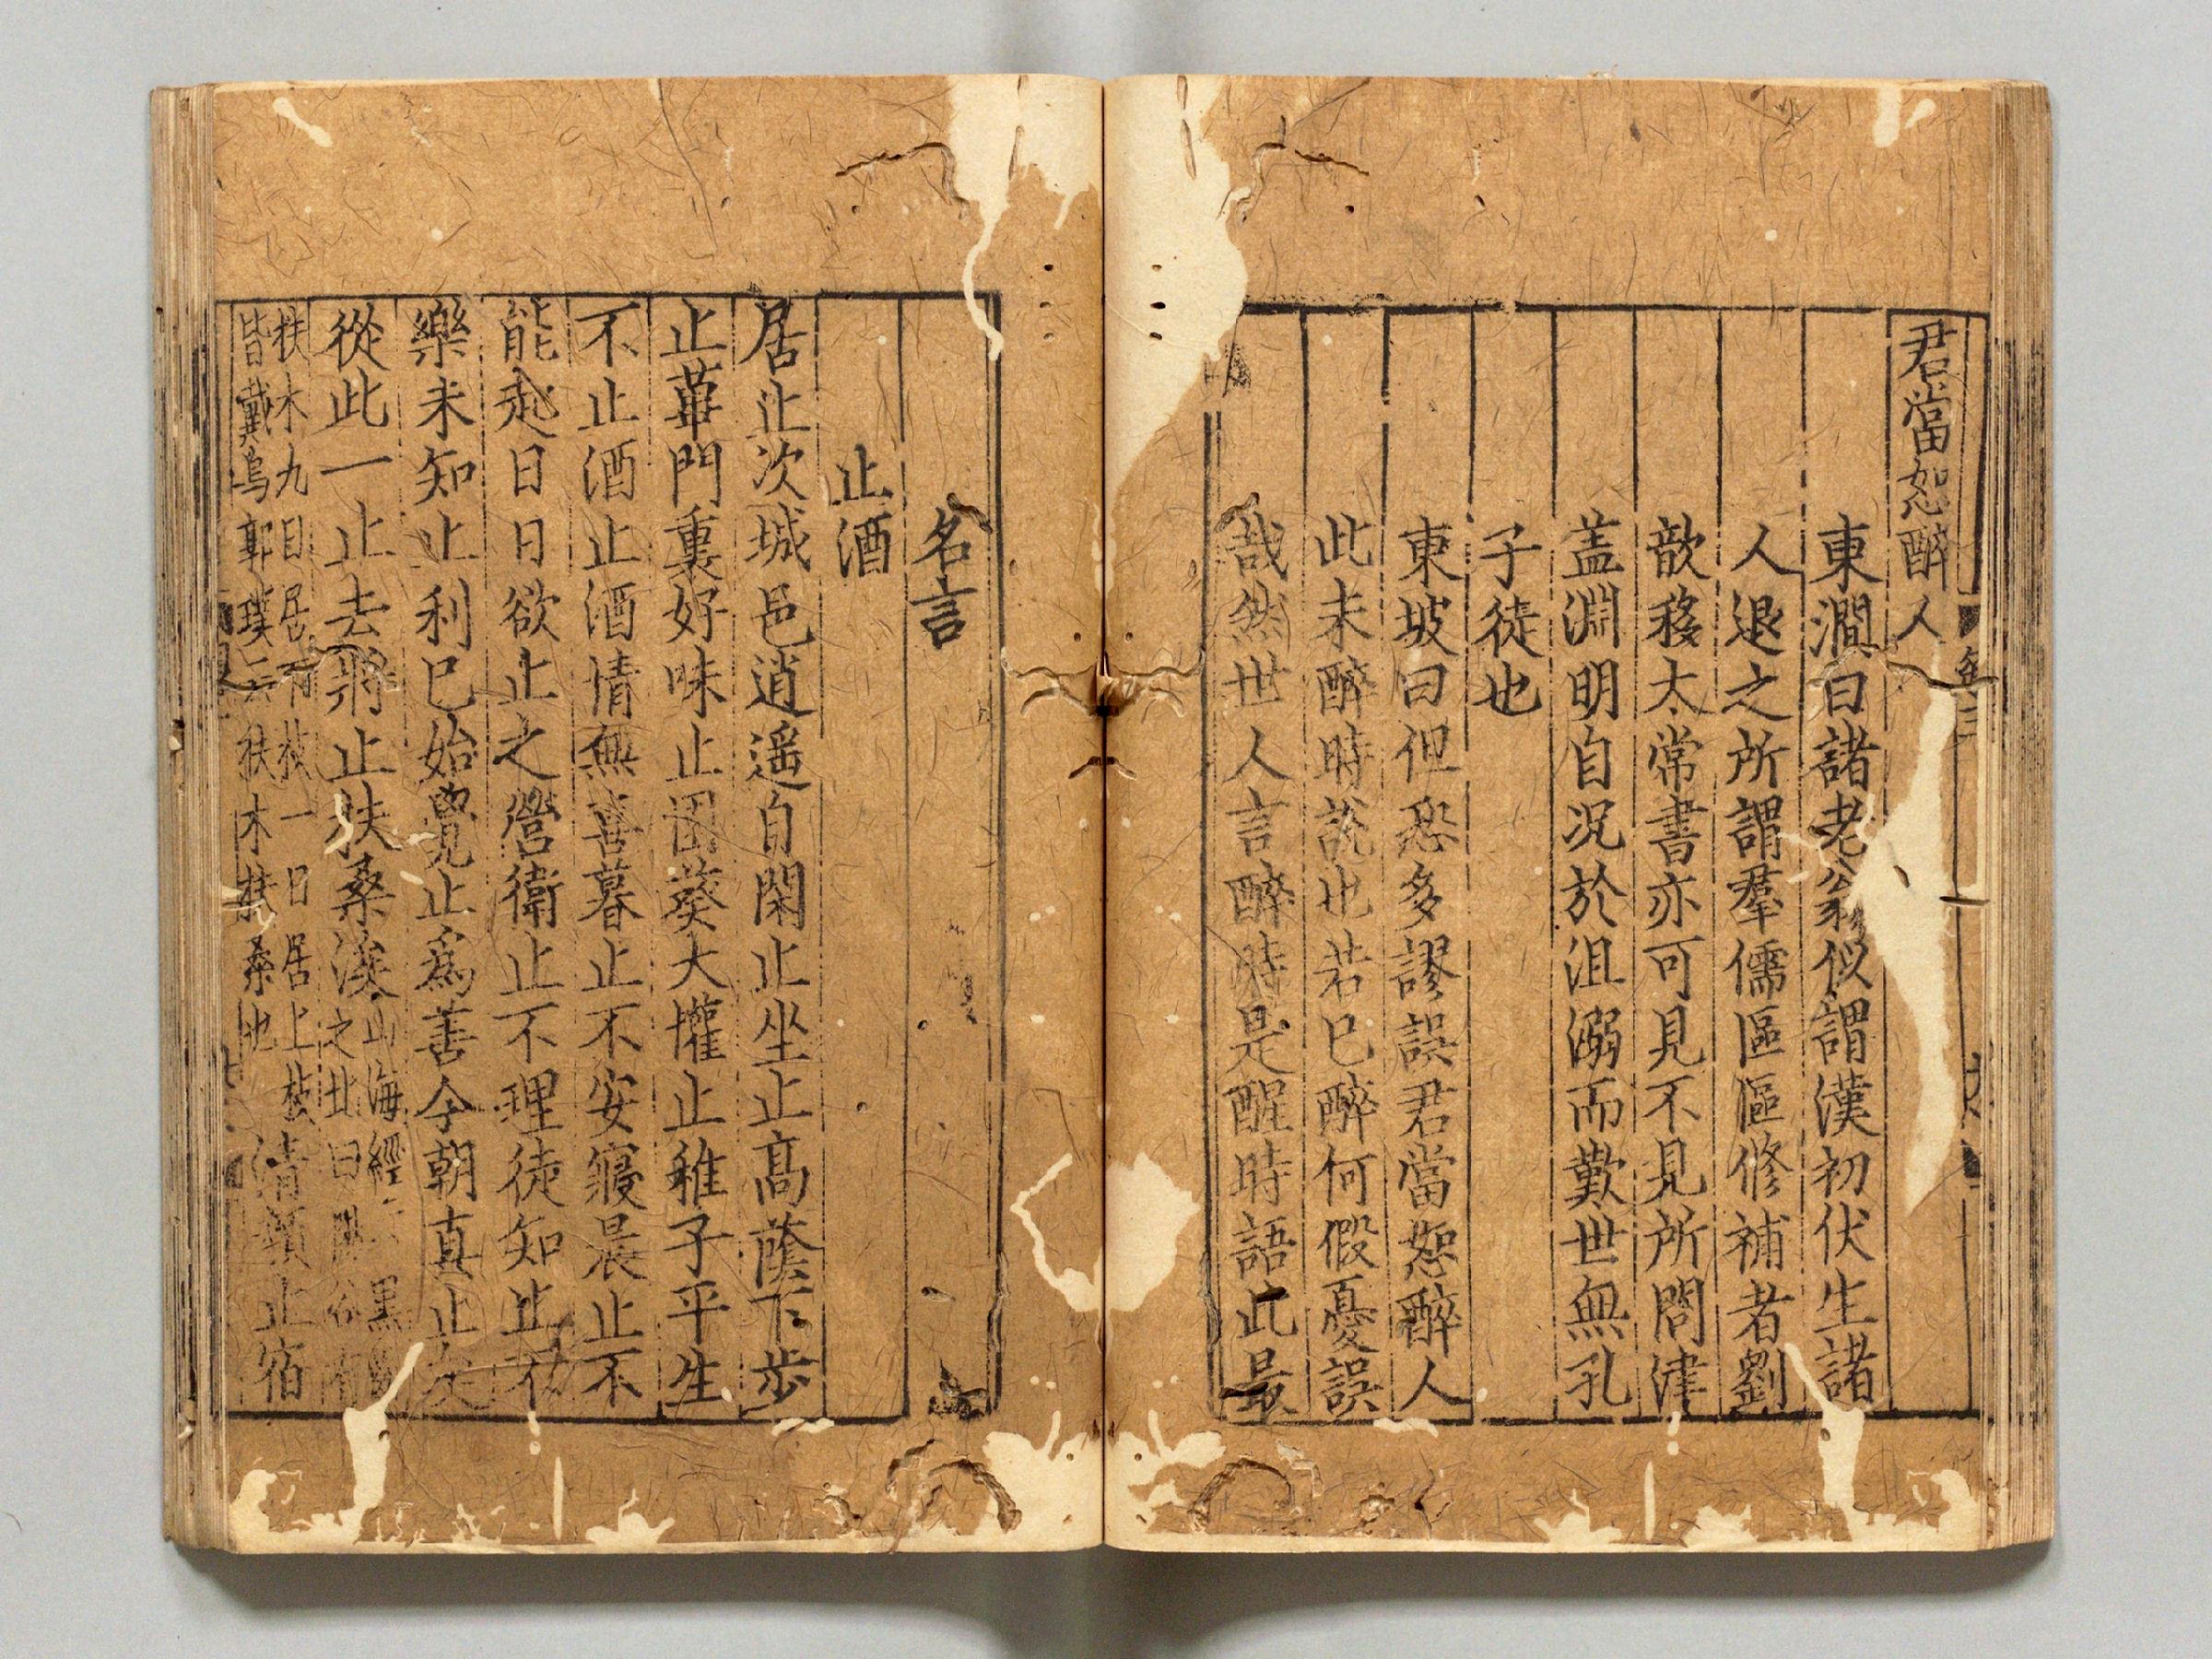 君當恕醉人
東澗曰諸老翁似謂漢初伏生諸
人退之所謂羣儒區區修補者劉
歆移太常書亦可見不見所問津
盖淵明自况於沮溺而歎世無孔
子徒也
東坡曰但恐多謬誤君當恕醉人
此未醉時說也若已醉何假憂誤
哉然世人言醉時是醒時語此最
名言
止酒
居止次城邑逍遥自閑止坐止髙蔭下步
止蓽門裏好味止園葵大懽止稚子平生
不止酒止酒情無喜暮止不安寢晨止不
能起日日欲止之營衛止不理徒知止不
樂未知止利已始覺止爲善今朝真止矣
從此一止去將止扶桑涘 山海經 黑
之北曰
扶木九日居下枝一日居上枝
皆戴烏郭璞云扶木扶桑也
清顔止宿